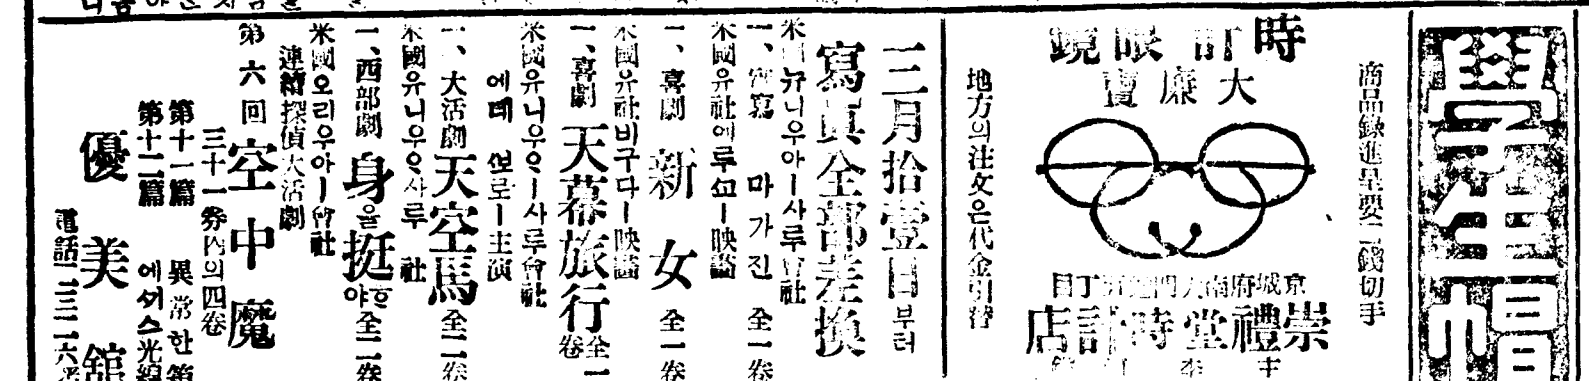 商品錄進呈要二錢切手
時計眼鏡
大廉賣
地方의注文은代金引替
京城府南大門通
崇禮堂時計店
三月拾壹日부터
寫眞全部差換
米國유니우아ー사루會社
一、實寫 마가진 全一卷
米國유社에루쏘ー映畵
一、喜劇 新女 全一卷
米國유社비구다ー映畵
一、喜劇 天幕旅行 全一卷
米國유니우으ー사루會社
에데 쏘로ー主演
一、大活劇 天空馬 全二卷
米國유니우으사루 社
一、西部劇 身을挺하야 全二卷
米國오리우아ー會社
連續探偵大活劇
第六回 空中魔
三十一券內의四卷
第十一篇 異常한箱
第十二篇 에서스光線
優美舘
電話二三二六